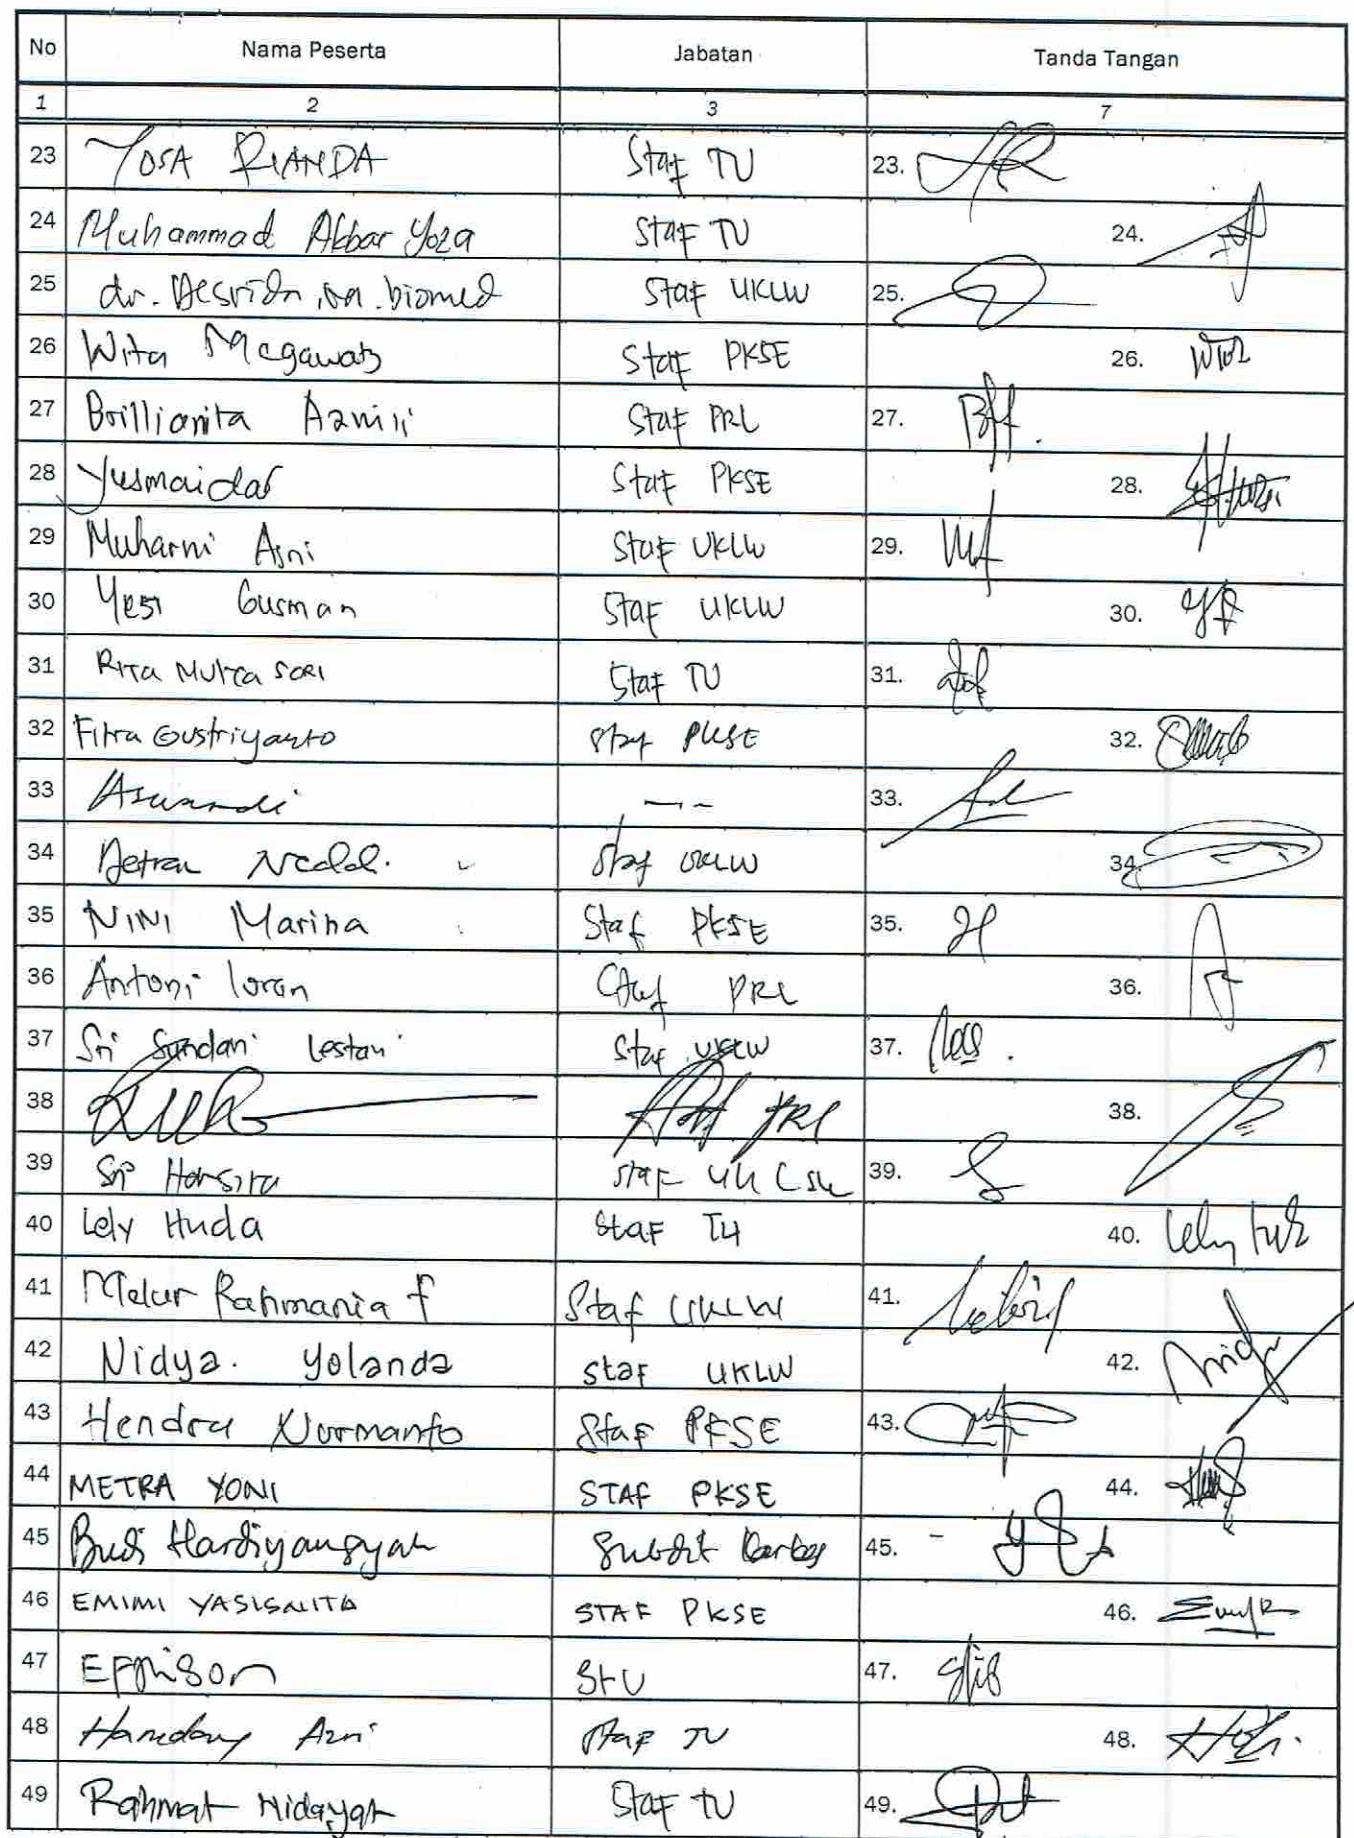 No Nama Peserta Jabatan Tanda Tangan
1 2 3 7
23 YOSA RIANDA Staf TU 23.
24 Muhammad Akbar Yoza Staf TU 24.
25 dr. Desrida, M. biomed Staf UKLW 25.
26 Wita Megawati Staf PKSE 26.
27 Brillianita Azmiri Staf PRL 27.
28 Yusmaidar Staf PKSE 28.
29 Muharni Asni Staf UKLW 29.
30 Yesi Gusman Staf UKLW 30.
31 Rita Mutia Sari Staf TU 31.
32 Fitra Gustriyanto Staf PKSE 32.
33 Asuandi 33.
34 Staf UKLW 34.
35 NINI Marina Staf PKSE 35.
36 Antoni loran Staf PRL 36.
37 Sri Sundari Lestari Staf UKLW 37.
38 Staf PRL 38.
39 Sri Staf 39.
40 Lely Huda Staf TU 40.
41 Melur Rahmania f Staf UKLW 41.
42 Nidya. Yolanda Staf UKLW 42.
43 Hendra Nurmanto Staf PKSE 43.
44 METRA YONI STAF PKSE 44.
45 Budi Hardiyansyah Subdit 45.
46 EMIMI YASISNITA STAF PKSE 46.
47 47.
48 Staf TU 48.
49 Rahmat Hidayat Staf TU 49.